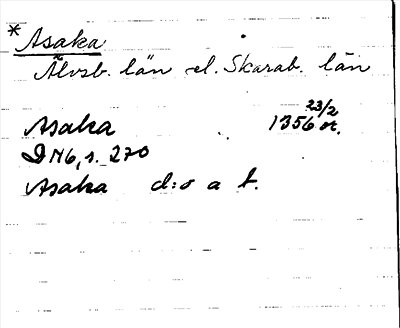 *Asaka
Älvsb. län el. Skarab. län
Asaka 1356 23/2 or.
D N6, s. 270
Asaka d:o a t.